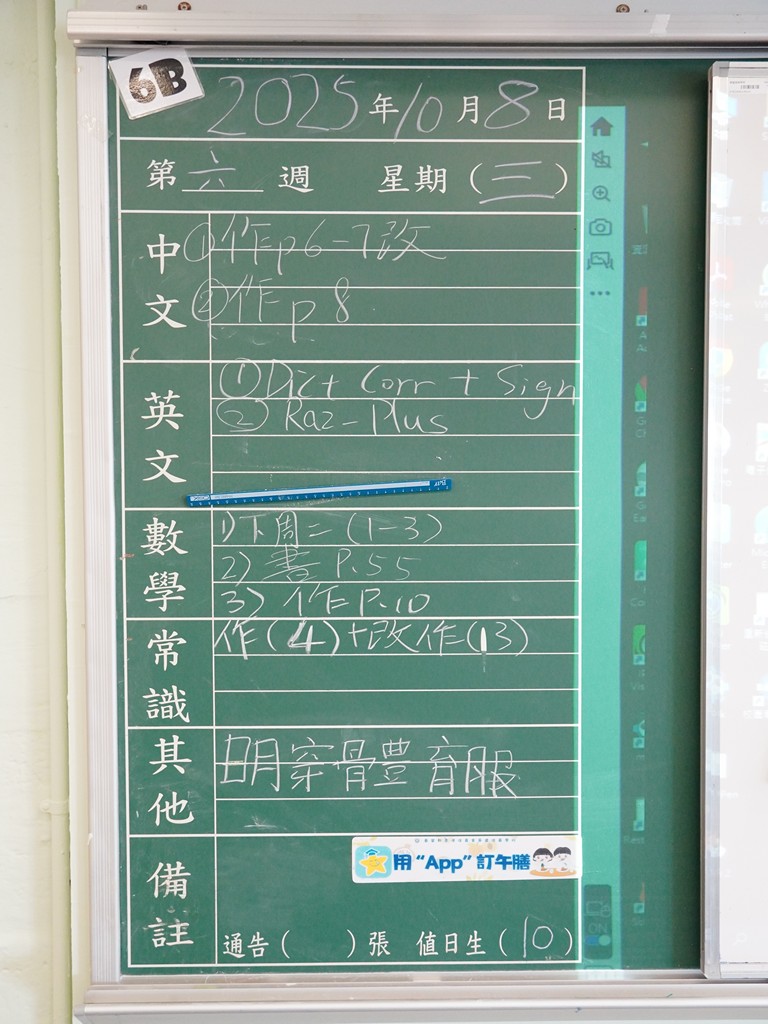 6B
2025年10月8日
第六週 星期(三)
中文
①作p6-7改
②作p8
英文
①Dict Corr + Sign
② Raz-Plus
數學
1)下周二(1-3)
2) 書P.55
3) 作P.10
常識
作(4)+改作(13)
其他
明穿體育服
備註
用“App”訂午膳
通告( )張 值日生(10)
ON